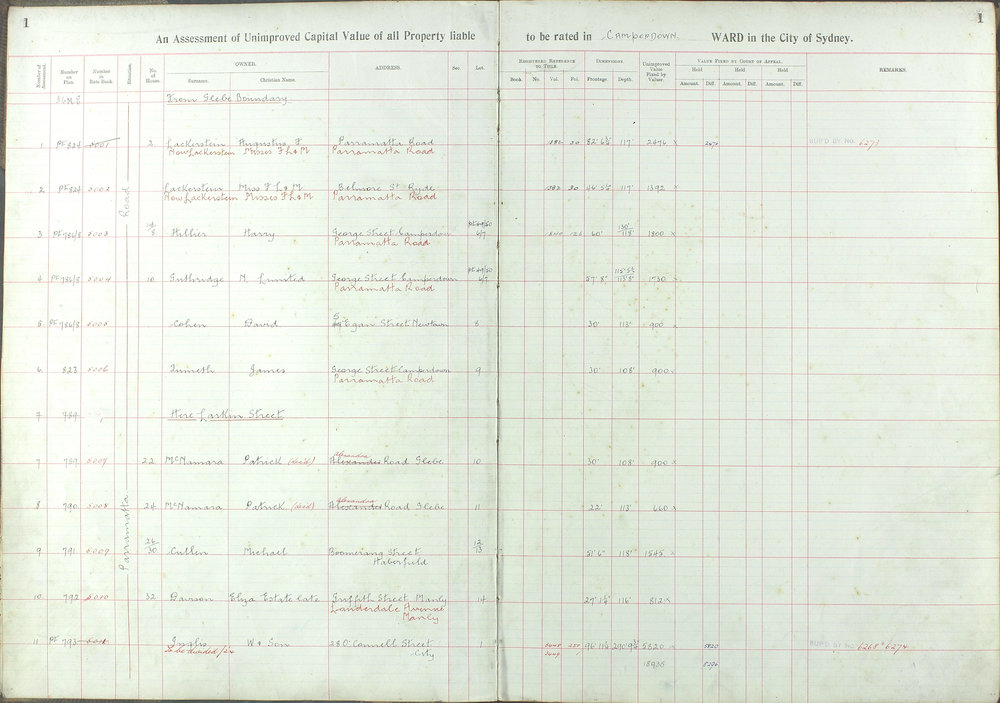 1
1
An Assessment of Unimproved Capital Value of all Property liable to be rated in Camperdown WARD in the City of Sydney.
Number of Assessment. Number on Plan Number in Rate Book. Situation. No. of House. OWNER. Surname. Christian Name. ADDRESS. Sec. Lot. REGISTERED REFERENCE TO TITLE. Book. No. Vol. Fol. DIMENSIONS. Frontage. Depth. Unimproved Value Fixed by Valuer. VALUE FIXED BY COURT OF APPEAL. Held Amount. Diff. Held Amount. Diff. Held Amount. Diff. REMARKS.
From Glebe Boundary
Parramatta Road
1 PF 824 5001 2 Lackerstein Augustus F Parramatta Road 30 82' 6½" 117' 2476 x SUP'D BY NO. 6273
Now Lackerstein Misses F L & M Parramatta Road
2 PF 824 5002 Lackerstein Miss F L & M Belmore St Ryde 30 117' 1392 x
Now Lackerstein Misses F L & M Parramatta Road
3 PF 786/8 5003 Hillier Harry George Street Camperdown 6/7 60' 130' 118' 1800 x
Parramatta Road
4 PF 786/8 5004 10 Guthridge N. Limited George Street Camperdown 6/7 57' 8" 113' 8" 1730
Parramatta Road
5 PF 786/8 5005 Cohen David Egan Street Newtown 8 30' 113' 900 x
6 823 5006 James George Street Camperdown 9 30' 108' 900 x
Parramatta Road
7 789 Here Larkin Street
7 789 5007 22 McNamara Patrick (decd) Alexander Alexandra Road Glebe 10 30' 108' 900 x
8 790 5008 24 McNamara Patrick (decd) Alexander Alexandra Road Glebe 11 22' 113' 660 x
9 791 5009 26/30 Cullen Michael Boomerang Street 12/13 51' 6" 118' 1545 x
Haberfield
10 792 5010 32 Davson Eliza Estate late Griffith Street Manly 14 27' 1½" 116' 812 x
Lauderdale Avenue
Manly
11 PF 793 5011 Inglis W & Son 28 O'Connell Street 1 96' 11½" 290' 5820 x 5820 SUP'D BY NO. 6268 6274
To be divided City
18935